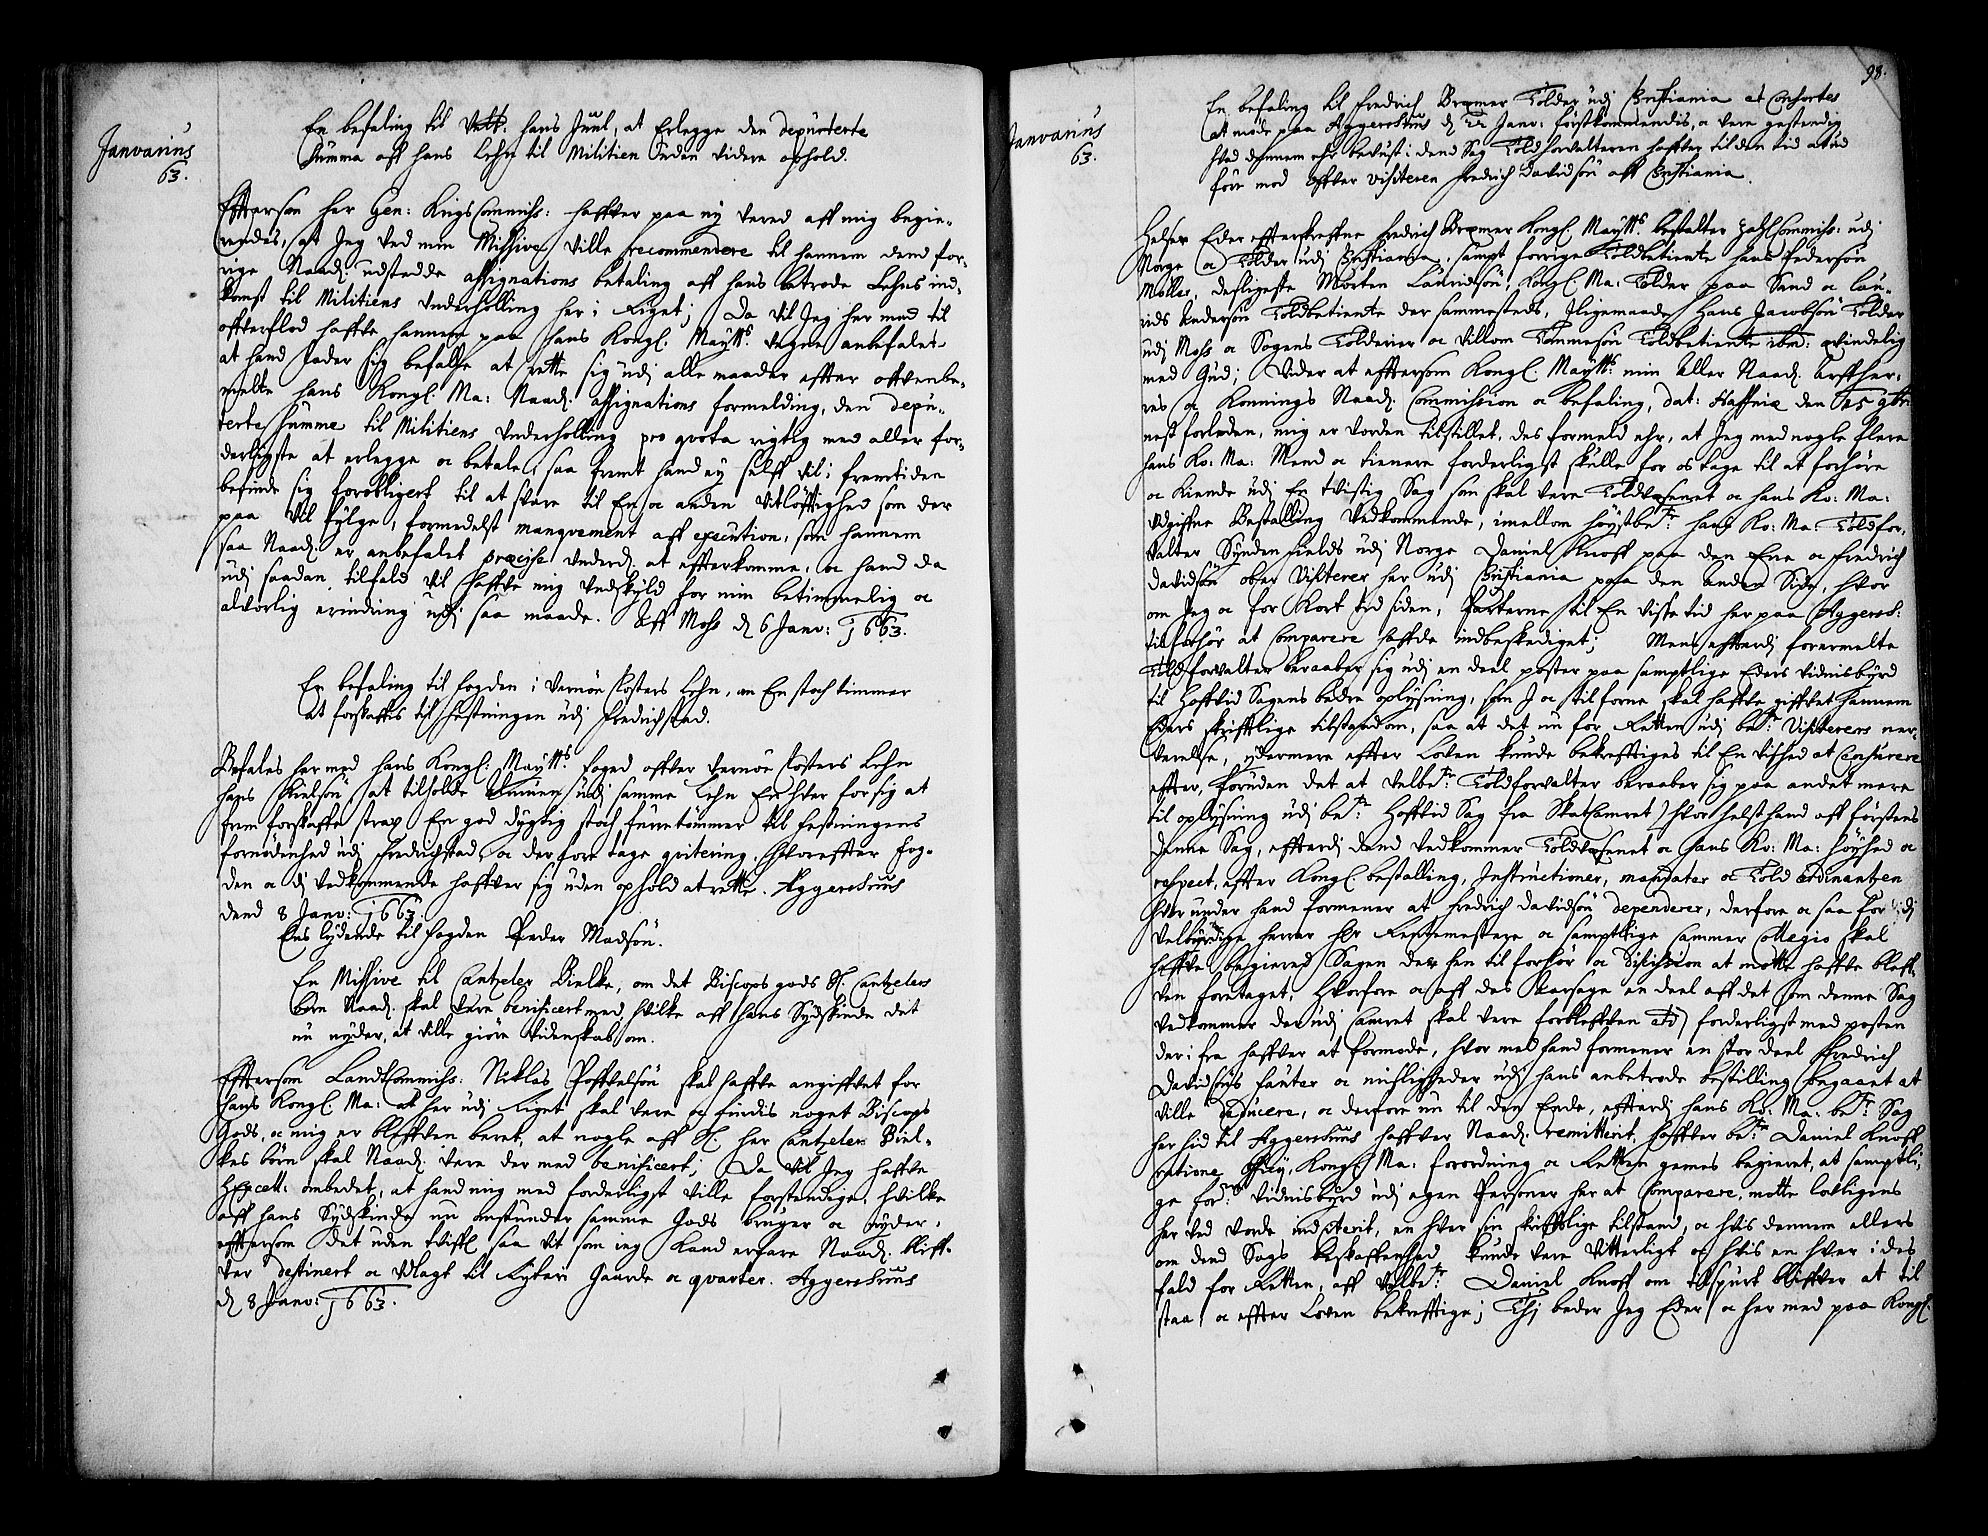 Janvarius
63.
En befaling til Velb. Hans Juul, at Erlegge den deputerte
Summa aff hans Lehn til Militien uden videre ophold.
Efftersom her Gen: KrigsCommiss: haffver paa ny vered aff mig begie-
rendes, at Jeg ved min Missive ville recommendere til hannem dend for-
rige Naad. udstedde assignations betaling aff hans betrode Lehns ind-
komst til Militiens underholling her i Riget; Da vil Jeg her med til
offverflod haffve hannem paa Hans Kongl. Maytts. vegne anbefalet
at hand lader sig befalle at rette sig udj alle maader effter offvenbe-
melte hans Kongl. Ma: Naad. assignations formelding, den depu-
terte Summe til Militiens underholling pro qvota rigtig med aller for-
derligste at erlegge oc betale, saa fremt hand ey self vil i fremtiden
befinde sig forobligert til at svare til En oc anden vitløfftighed som der
paa vil følge, formedelst manqvement aff execution, som hannem
saa Naad. er anbefalet præcise underd. at effterkomme, oc hand da
udj saadan tilfald vil haffve mig undskyld for min betimmelig oc
alvorlig erindring udj saa maade. Aff Moss d. 6 Janv: 1663.
En befaling til fogden i Vernøe Closters Lehn, om En stoch timmer
at forskaffis til festningen udj Fredrichstad.
Befales her med hans Kongl. Maytts. foged offver Vernøe Closters Lehn
hans Nielsøn at tilholde Almuen udj samme Lehn En hver for sig at
frem forskaffe strax En god dygtig stoch furretømmer til festningens
fornødenhed udj Fredrichstad, oc derfore tage qvitering. Hvoreffter fog-
den oc di vedkommende haffver sig uden ophold at rette. Aggershuus
dend 8 Janv: 1663.
Ens lydende til fogden Peder Madsøn.
En Missive til Cantzeler Bielke, om det Biscops gods Sl. Cantzelers
børn Naad. skal vere benificert med, hvilke aff hans Sydskinde det
nu nyder, at ville giøre videnskab om.
Efftersom LandCommiss: Niklas Poffvelsøn skal haffve angiffvet for
hans Kongl. Ma: at her udj Riget skal vere oc findis noget Biscops
Gods, oc mig er bleffven beret, at nogle aff Sl. her Cantzeler Biel-
kes børn skal Naad. vere der med benificert; Da vil Jeg haffve
H. Excell: ombedet, at hand mig med forderligst ville forstendige, hvilke
aff hans Sydskinde nu anstunder samme Gods bruger oc nyder,
efftersom det uden tviffl saa vt som ieg kand erfare Naad. bliff-
ver destinert oc udlagt til Ryter Gaarde oc qvarter. Aggershuus
d. 8 Janv: 1663.
98.
Janvarius
63.
En befaling til Fredrich Bremer Tolder udj Christiania et Consortes
at møde paa Aggershuus d. 22 Janv: førstkommendis, oc vere gestendig
hvad dennem ehr bevust i dend Sag Toldforvalteren haffver til den tid at ud
føre mod Offver visiteren Fredrich Davidsøn aff Christiania.
Helser Eder effterskreffne Fredrich Bremer Kongl. Maytts. bestalter ZahlCommiss: udj
Norge oc Tolder udj Christiania, sampt forrige Toldbetiente Hans Pedersøn
Møller, desligeste Morten Lauridsøn, Kongl. Ma: Tolder paa Sand oc Lau-
rids Andersøn Toldbetiente der sammesteds, Iligemaade Hans Jacobsøn Tolder
udj Moss oc Sognens Tolderier oc Villom Tommesøn Toldbetiente ibid: qvindelig
med Gud; Vider at efftersom Kongl. Maytts. min Aller Naad. Arffher-
res oc Konnings Naad. Commission oc befaling, dat: Haffniæ den 25 9bris
nest forleden, mig er vorden tilstillet, des formeld ehr, at Jeg med nogle flere
hans Ko: Ma: Mend oc tienere forderligst skulle for os tage til at forhøre
oc kiende udj En tvistig Sag som skal vere Toldvesenet oc hans Ko: Ma:
Udgiffne Bestalling vedkommende, imellom høystbete. hans Ko: Ma: Toldfor-
valter Synden fields udj Norge Daniel Knoff paa den Ene oc Fredrich
Davidsøn ober Visiterer her udj Christiania paa den Anden Side, hvor
om Jeg oc for kort tid siden, Parterne til En visse tid her paa Aggers:
til forhør at Comparere haffde indbeskediget; Mens effterdj foremelte
Toldforvalter beraaber sig udj en deel poster paa samptlige Eders vidnisbyrd
til Hoffvid Sagens bedre oplysning, som J oc tilforne skal haffve giffvet hannem
Eders skrifftlige tilstand om, saa at det nu for Retten udj bete. Visiterers ner-
verelse, ydermere effter Loven kunde bekrefftiges til En vished at Censurere
effter, foruden det at velbete. Toldforvalter beraaber sig paa andet mere
til oplysning udj bete. Hoffvid Sag fra SkatCameret) hvor helst hand aff førstens
denne Sag, effterdj dend vedkommer Toldvesenet oc hans Ko: Ma: høyhed oc
respect, effter Kongl. bestalling, Instructioner, mandater oc Told Ordinantzen
hvor under hand formener at Fredrich Davidsøn dependerer, derfore oc saa for di
Velbyrdige herrer Hr Rentemestere oc samptlige Cammer Collegio skal
haffve begieret Sagen der hen til forhør oc Dission at motte haffve bleff-
ven foretaget, Hvorfore oc aff des Aarsage en deel aff det som denne Sag
vedkommer der udj Cameret skal vere forbleffven etc) forderligst med posten
der i fra haffver at formode, hvor med hand formener en stor deel Fredrich
Davidsøns fauter oc misligheder udj hans anbetrode bestilling begaaet at
ville deducere, oc derfore nu til den Ende, effterdj hans Ko: Ma: bete. Sag
her hid til Aggershuus haffver Naad. remitterit, haffver bete. Daniel Knoff
ratione officij, Kongl. Ma: forordning oc Retten gemes begieret, at samptli-
ge forne. vidnisbyrd udj egen Personer her at Comparere, motte lovligens
her ved vorde indciterit, en hver sin skrifftlige tilstand, oc hvis dennem ellers
om dend Sags beskaffenhed kunde vere vitterligt oc hvis en hver i des
fald for Retten, aff velbete. Daniel Knoff om tilspurt bliffver at til
staa oc effter Loven bekrefftige; Thj beder Jeg Eder oc her med paa Kongl.